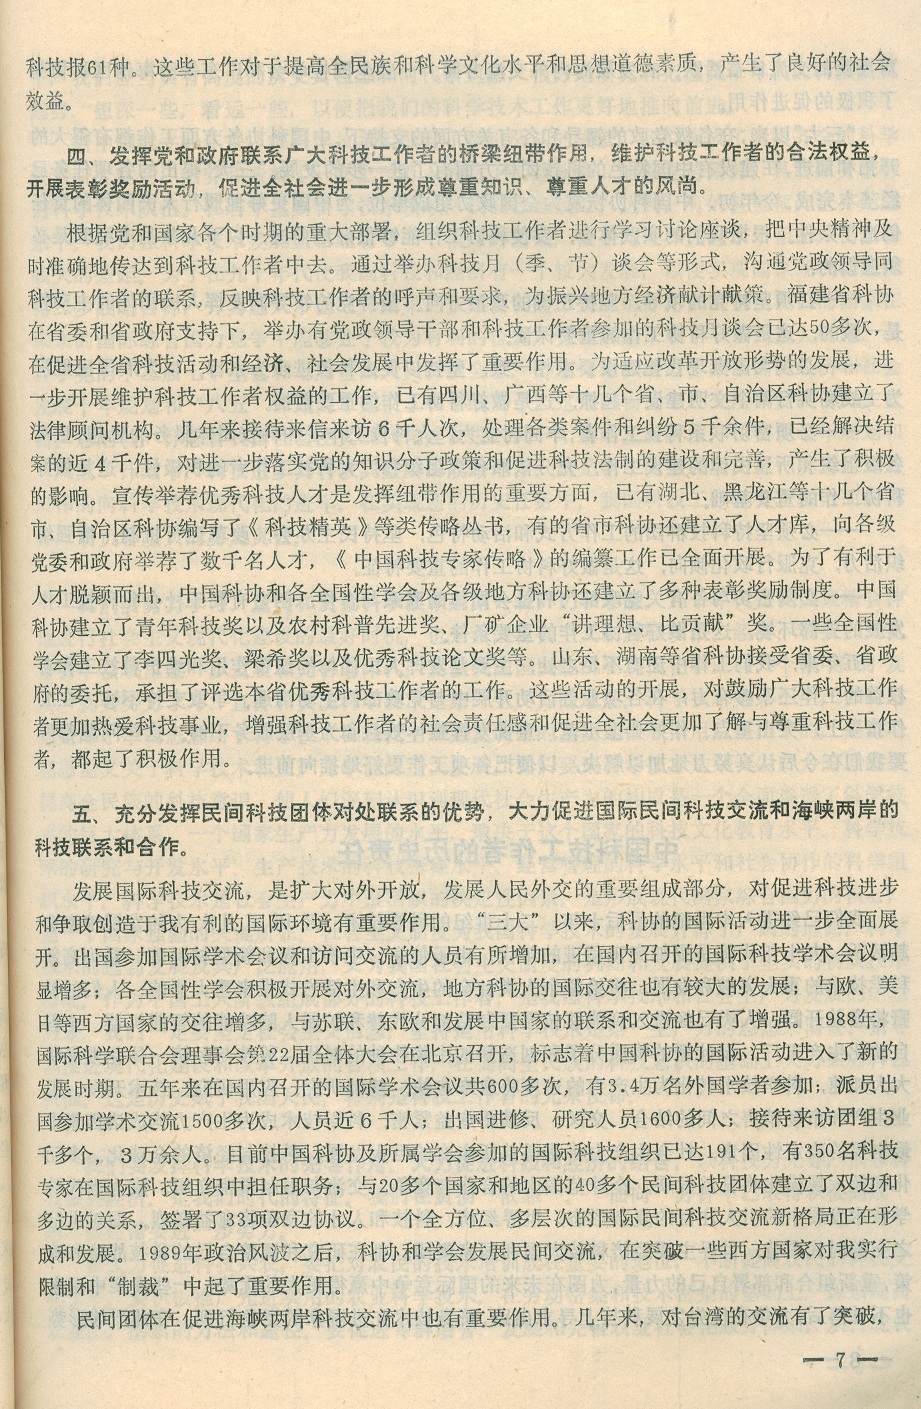 科技报61种。这些工作对于提高全民族和科学文化水平和思想道德素质，产生了良好的社会
效益。
四、发挥党和政府联系广大科技工作者的桥梁纽带作用，维护科技工作者的合法权益，
开展表彰奖励活动，促进全社会进一步形成尊重知识、尊重人才的风尚。
根据党和国家各个时期的重大部署，组织科技工作者进行学习讨论座谈，把中央精神及
时准确地传达到科技工作者中去。通过举办科技月（季、节）谈会等形式，沟通党政领导同
科技工作者的联系，反映科技工作者的呼声和要求，为振兴地方经济献计献策。福建省科协
在省委和省政府支持下，举办有党政领导干部和科技工作者参加的科技月谈会已达50多次，
在促进全省科技活动和经济、社会发展中发挥了重要作用。为适应改革开放形势的发展，进
一步开展维护科技工作者权益的工作，已有四川、广西等十几个省、市、自治区科协建立了
法律顾问机构。几年来接待来信来访6千人次，处理各类案件和纠纷5千余件，已经解决结
案的近4千件，对进一步落实党的知识分子政策和促进科技法制的建设和完善，产生了积极
的影响。宣传举荐优秀科技人才是发挥纽带作用的重要方面，已有湖北、黑龙江等十几个省
市、自治区科协编写了《科技精英》等类传略丛书，有的省市科协还建立了人才库，向各级
党委和政府举荐了数千名人才，《中国科技专家传略》的编纂工作已全面开展。为了有利于
人才脱颖而出，中国科协和各全国性学会及各级地方科协还建立了多种表彰奖励制度。中国
科协建立了青年科技奖以及农村科普先进奖、厂矿企业“讲理想、比贡献”奖。一些全国性
学会建立了李四光奖、梁希奖以及优秀科技论文奖等。山东、湖南等省科协接受省委、省政
府的委托，承担了评选本省优秀科技工作者的工作。这些活动的开展，对鼓励广大科技工作
者更加热爱科技事业，增强科技工作者的社会责任感和促进全社会更加了解与尊重科技工作
者，都起了积极作用。
五、充分发挥民间科技团体对处联系的优势，大力促进国际民间科技交流和海峡两岸的
科技联系和合作。
发展国际科技交流，是扩大对外开放，发展人民外交的重要组成部分，对促进科技进步
和争取创造于我有利的国际环境有重要作用。“三大”以来，科协的国际活动进一步全面展
开。出国参加国际学术会议和访问交流的人员有所增加，在国内召开的国际科技学术会议明
显增多；各全国性学会积极开展对外交流，地方科协的国际交往也有较大的发展；与欧、美
日等西方国家的交往增多，与苏联、东欧和发展中国家的联系和交流也有了增强。1988年，
国际科学联合会理事会第22届全体大会在北京召开，标志着中国科协的国际活动进入了新的
发展时期。五年来在国内召开的国际学术会议共600多次，有3.4万名外国学者参加；派员出
国参加学术交流1500多次，人员近6千人；出国进修、研究人员1600多人；接待来访团组3
千多个，3万余人。目前中国科协及所属学会参加的国际科技组织已达191个，有350名科技
专家在国际科技组织中担任职务；与20多个国家和地区的40多个民间科技团体建立了双边和
多边的关系，签署了33项双边协议。一个全方位、多层次的国际民间科技交流新格局正在形
成和发展。1989年政治风波之后，科协和学会发展民间交流，在突破一些西方国家对我实行
限制和“制裁”中起了重要作用。
民间团体在促进海峡两岸科技交流中也有重要作用。几年来，对台湾的交流有了突破，
— 7 —